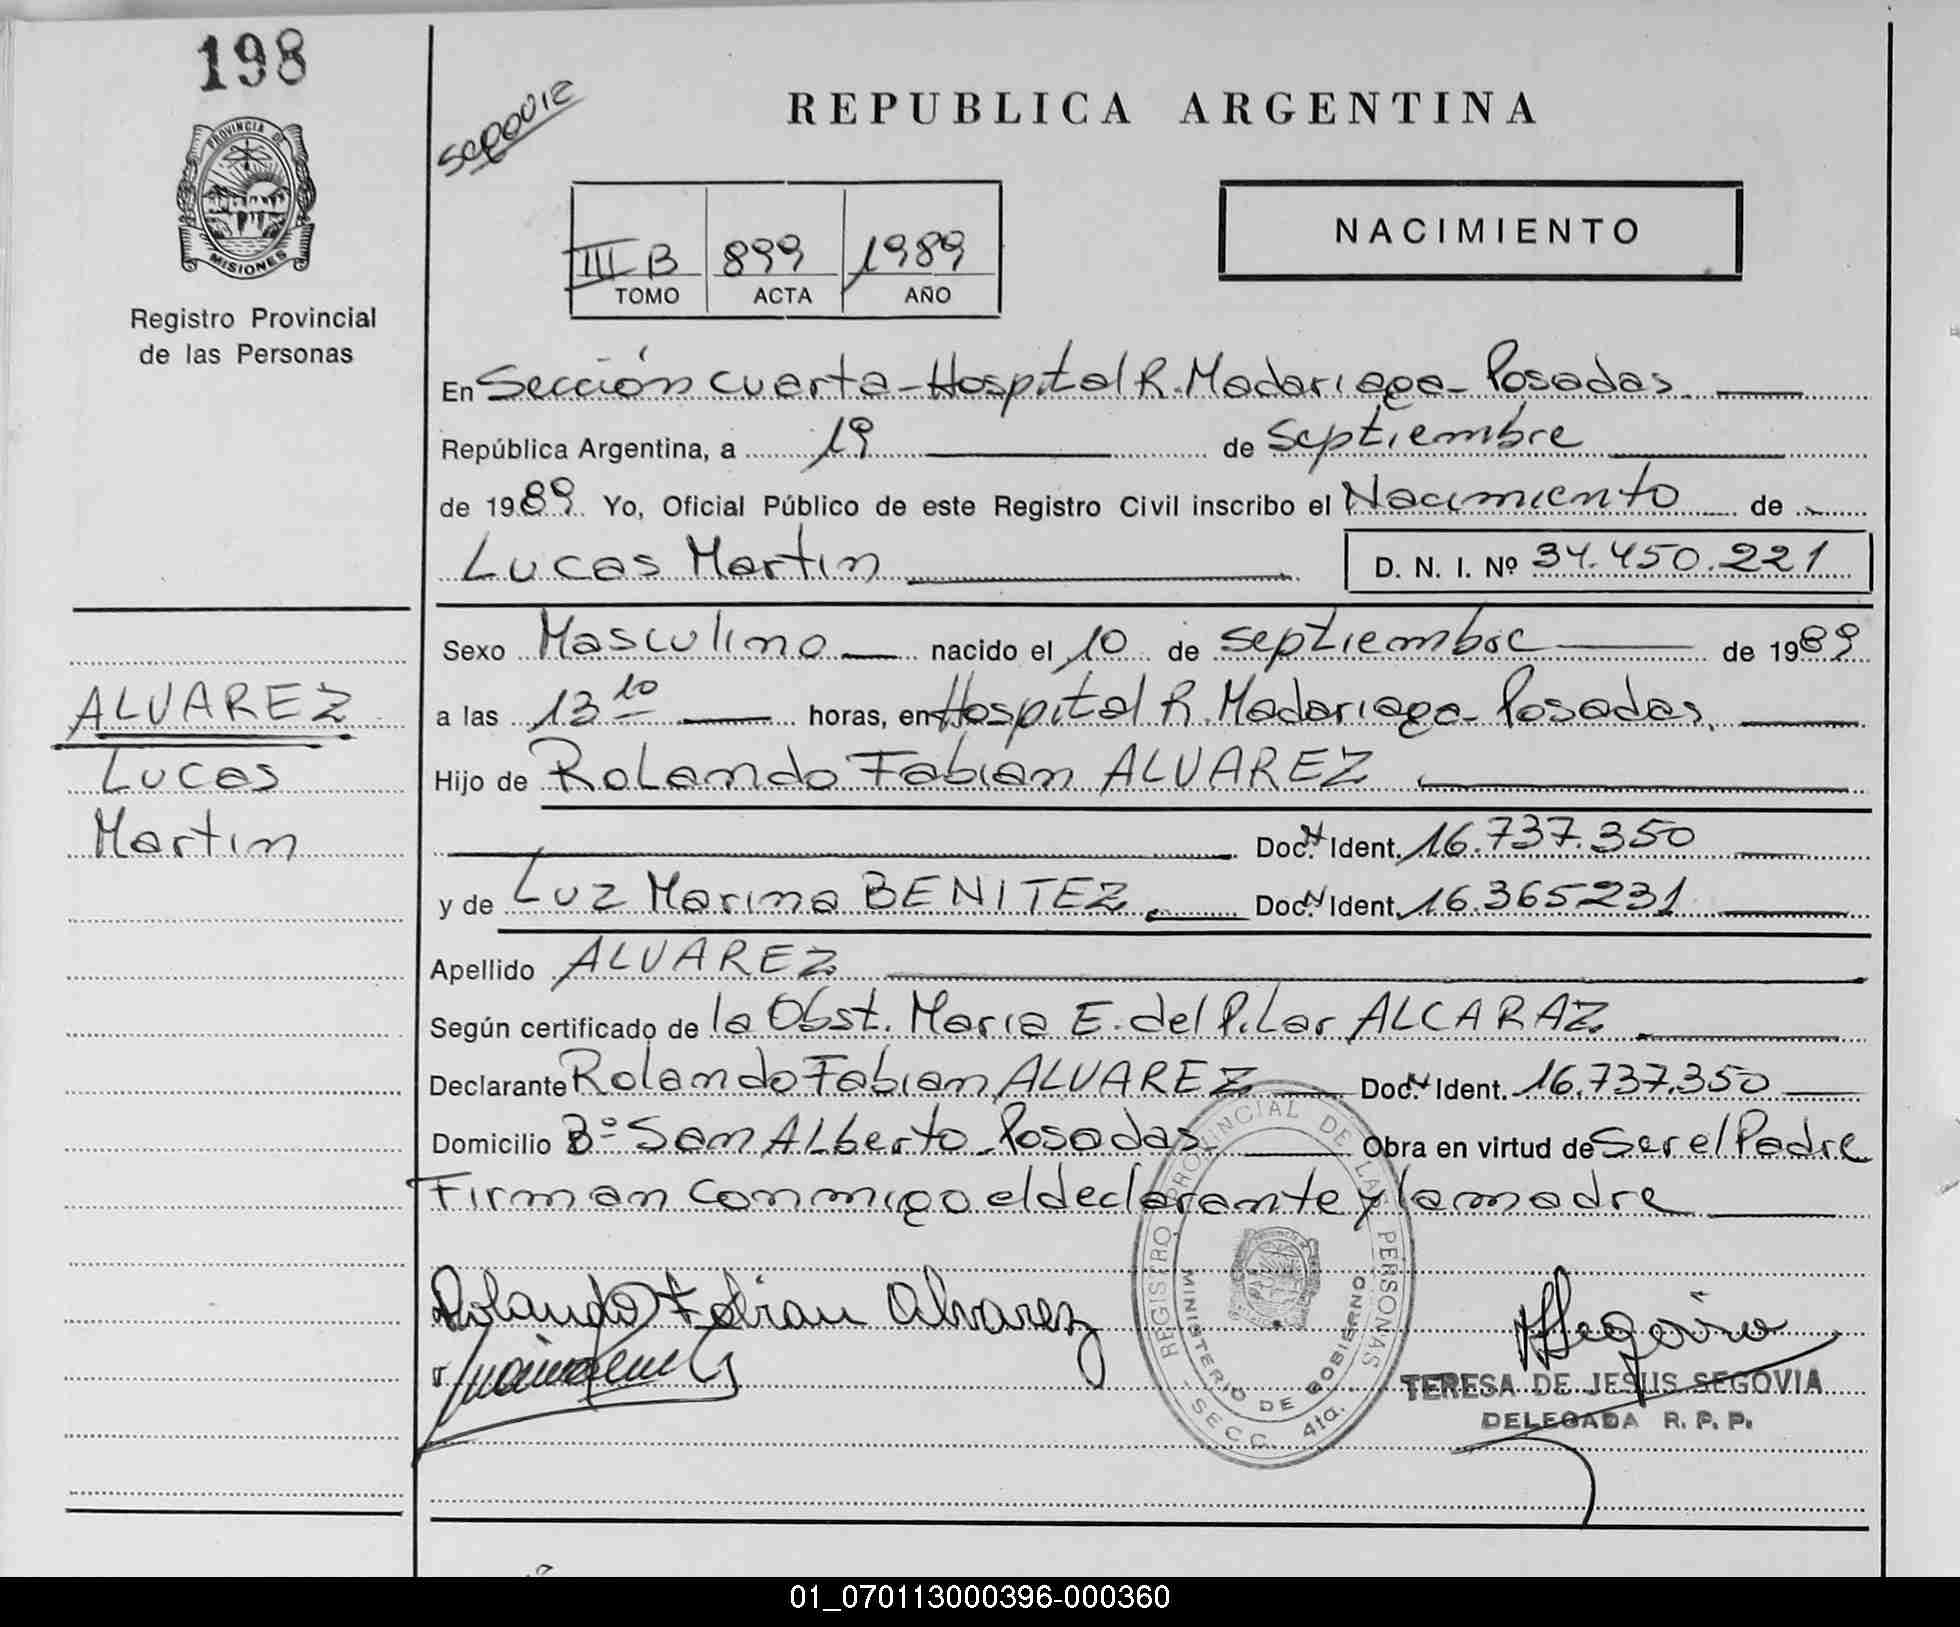 198
PROVINCIA DE
MISIONES
Registro Provincial
de las Personas
ALVAREZ
Lucas
Martin
REPUBLICA ARGENTINA
III B 899 1989
TOMO ACTA AÑO
NACIMIENTO
En Sección cuarta - Hospital R. Madariaga - Posadas.
República Argentina, a 19 de Septiembre
de 1989 Yo, Oficial Público de este Registro Civil inscribo el Nacimiento de
Lucas Martin D. N. I. Nº 34.450.221
Sexo Masculino nacido el 10 de septiembre de 1989
a las 13 10 horas, en Hospital R. Madariaga - Posadas.
Hijo de Rolando Fabian ALVAREZ
Doc. N Ident. 16.737.350
y de Luz Marina BENITEZ. Doc. N Ident. 16.365231
Apellido ALVAREZ
Según certificado de la Obst. Maria E. del Pilar ALCARAZ.
Declarante Rolando Fabian ALVAREZ Doc. N Ident. 16.737.350
Domicilio Bº San Alberto - Posadas Obra en virtud de Ser el Padre
Firman conmigo el declarante y la madre
Rolando Fabian Alvarez
REGISTRO PROVINCIAL DE LAS PERSONAS
MINISTERIO DE GOBIERNO
- SECC. 4ta.
Segovia
TERESA DE JESUS SEGOVIA
DELEGADA R. P. P.
01_070113000396-000360